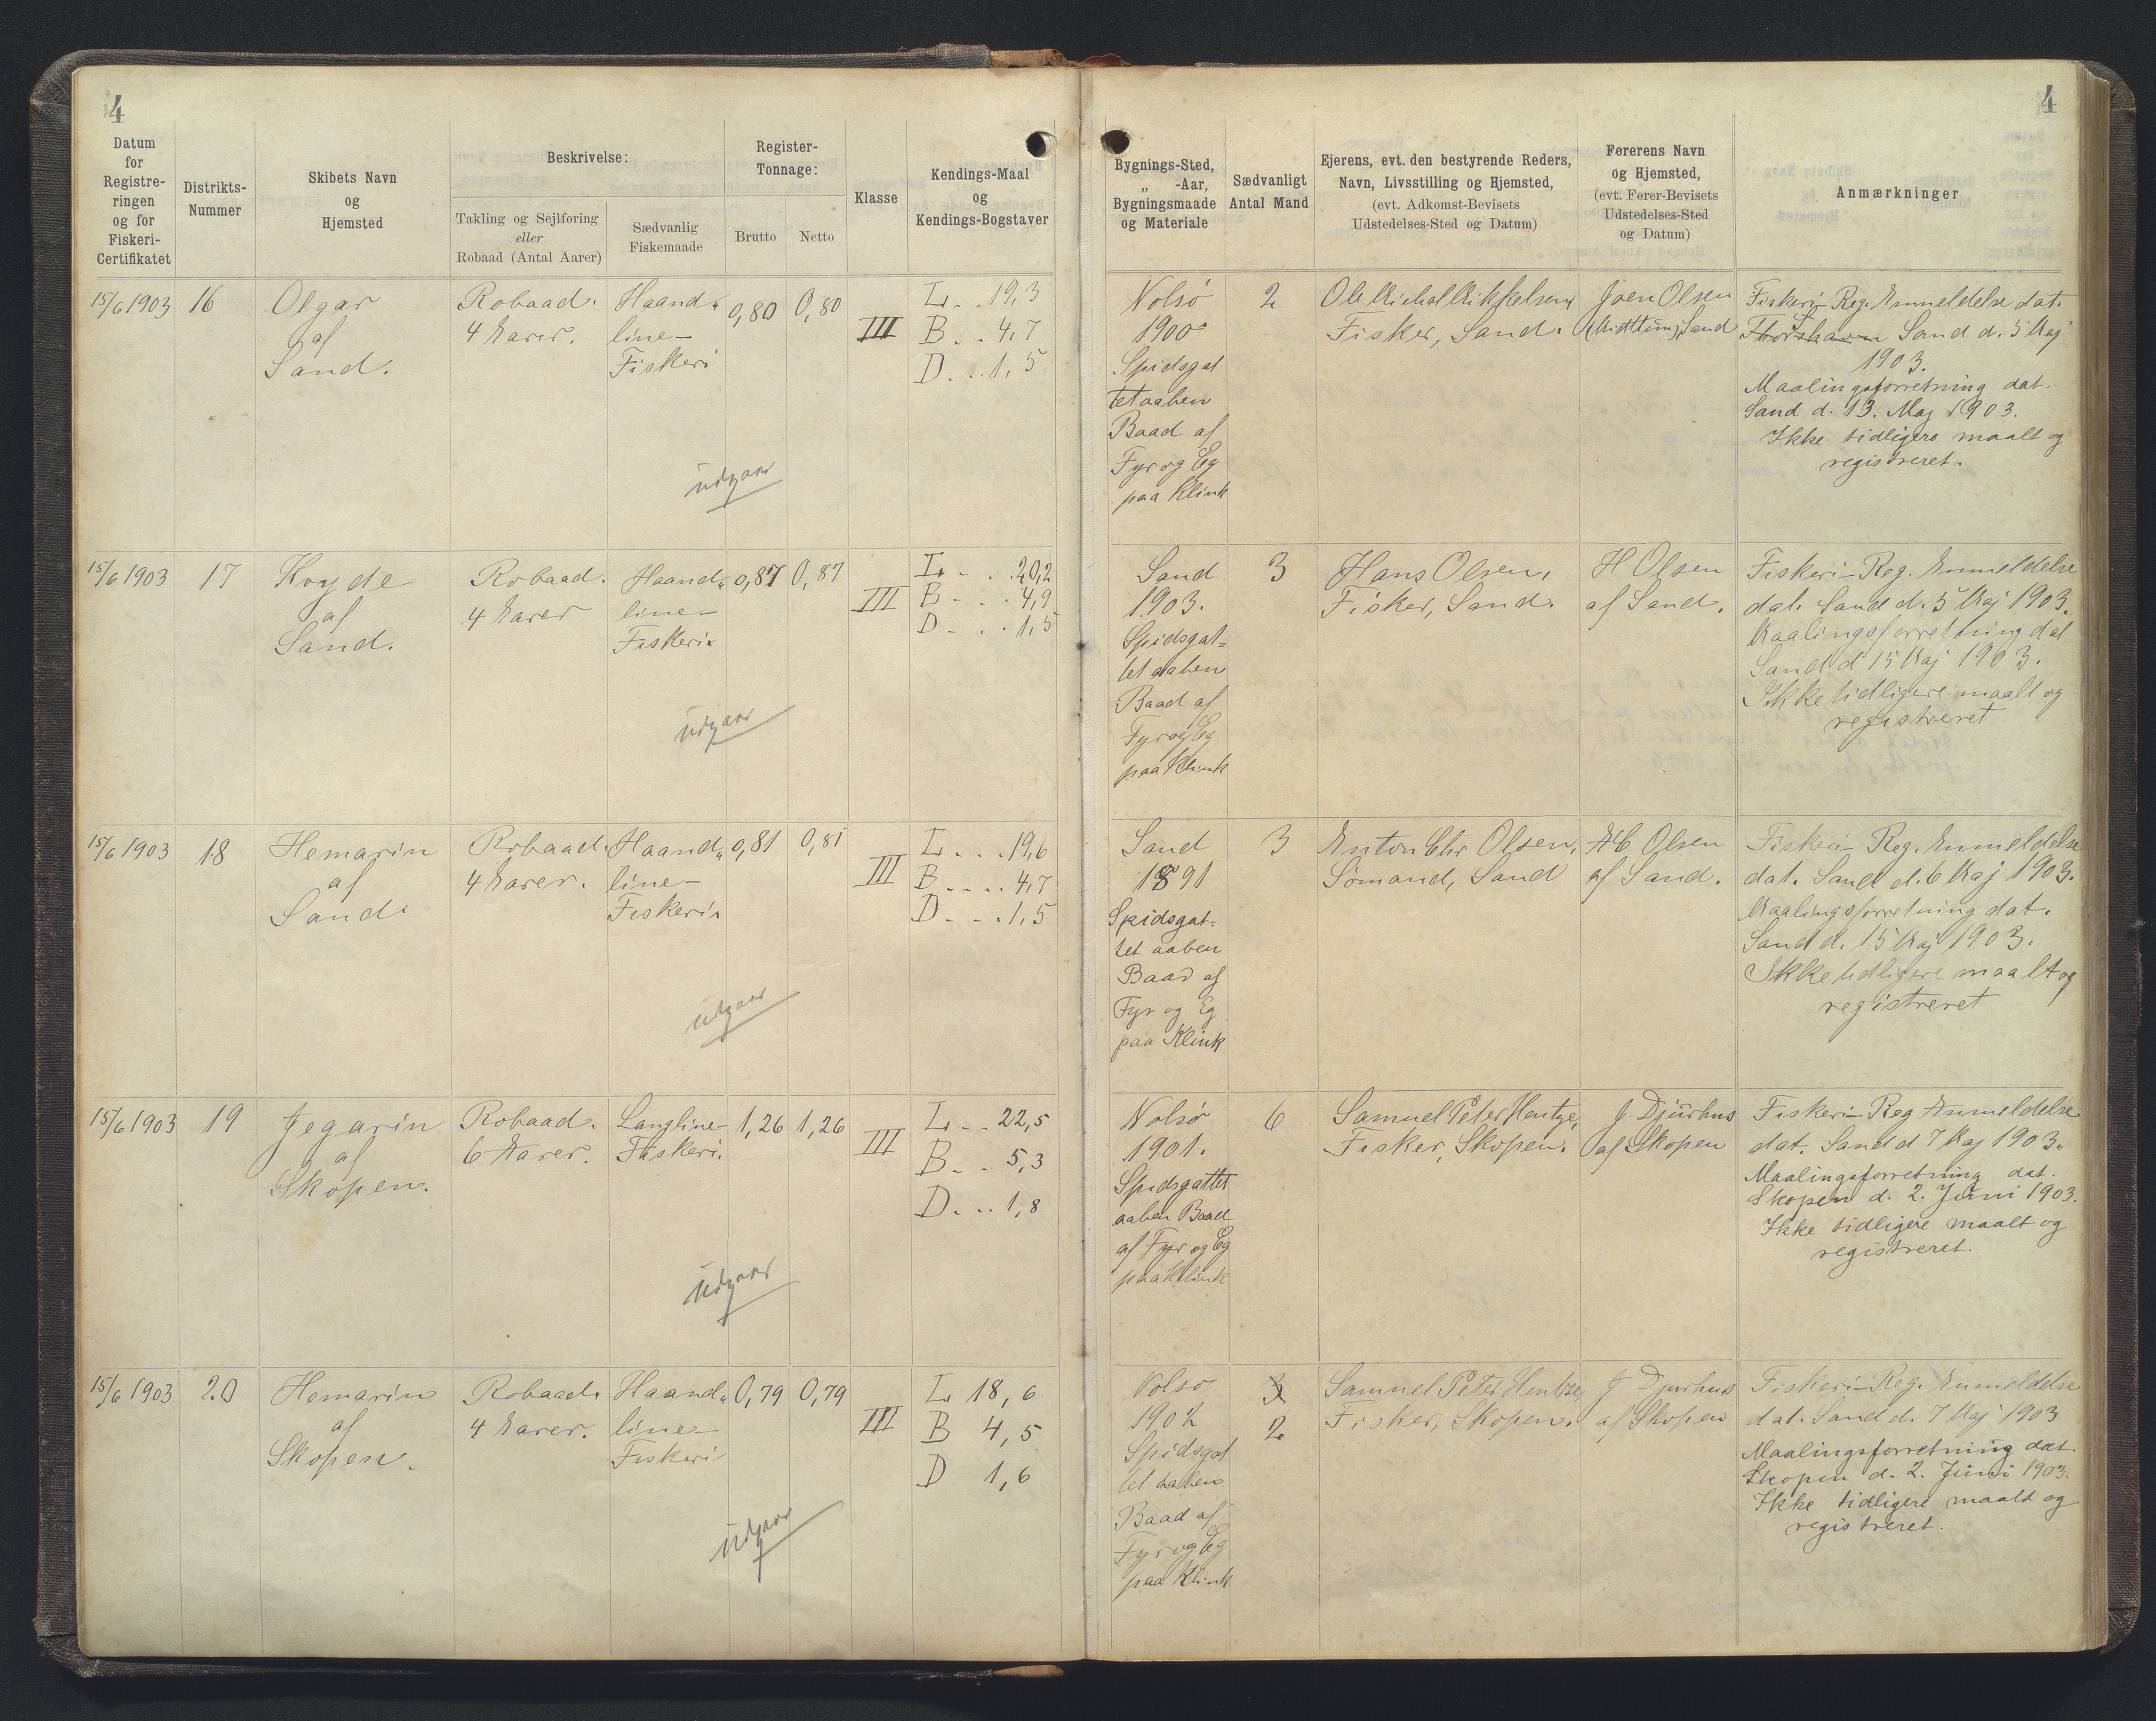 4
4
Datum
for
Registre-
ringen
og for
Fiskeri-
Certifikatet
Distrikts-
Nummer
Skibets Navn
og
Hjemsted
Beskrivelse:
Takling og Sejlføring
eller
Robaad (Antal Aarer)
Sædvanlig
Fiskemaade
Register-
Tonnage:
Brutto
Netto
Klasse
Kendings-Maal
og
Kendings-Bogstaver
Bygnings-Sted,
„ -Aar,
Bygningsmaade
og Materiale
Sædvanligt
Antal Mand
Ejerens, evt. den bestyrende Reders,
Navn, Livsstilling og Hjemsted,
(evt. Adkomst-Bevisets
Udstedelses-Sted og Datum)
Førerens Navn
og Hjemsted,
(evt. Fører-Bevisets
Udstedelses-Sted
og Datum)
Anmærkninger
15/6 1903
16
Olgar
af
Sand.
Robaad.
4 Aarer.
Haand„
line-
Fiskeri
0,80
0,80
III
L . . 19,3
B . . 4,7
D . . 1,5
udgaar
Nolsø
1900
Spidsgat
tet aaben
Baad af
Fyr og Eg
paa Klink
2
Ole Michal Mikkelsen,
Fisker, Sand.
Joen Olsen
Sand
Fiskeri-Reg. Anmeldelse dat.
Thorshavn Sand d. 5 Maj
1903.
Maalingsforretning dat.
Sand d. 13. Maj 1903.
Ikke tidligere maalt og
registreret.
15/6 1903
17
af
Sand.
Robaad.
4 Aarer
Haand„
line-
Fiskeri.
0,87
0,87
III
L . . . 20,2
B . . . 4,9
D . . . 1,5
udgaar
Sand
1903.
Spidsgat=
tet aaben
Baad af
Fyr og Eg
paa Klink
3
Hans Olsen,
Fisker, Sand.
H Olsen
af Sand.
Fiskeri-Reg. Anmeldelse
dat. Sand d. 5 Maj 1903.
Maalingsforretning dat
Sand d 15 Maj 1903.
Ikke tidligere maalt og
registreret
15/6 1903
18
Hemarin
af
Sand.
Robaad.
4 Aarer.
Haand„
line-
Fiskeri.
0,81
0,81
III
L . . . 19,6
B . . . . 4,7
D . . . 1,5
udgaar
Sand
1891
Spidsgat-
tet aaben
Baad af
Fyr og Eg
paa Klink
3
Anton Chr Olsen,
Sømand, Sand
A C Olsen
af Sand.
Fiskeri-Reg. Anmeldelse
dat. Sand d. 6 Maj 1903.
Maalingsforretning dat.
Sand d. 15 Maj 1903.
Ikke tidligere maalt og
registreret
15/6 1903
19
Jegarin
af
Skopen.
Robaad.
6 Aarer.
Langline-
Fiskeri.
1,26
1,26
III
L . . 22,5
B . . 5,3
D . . . 1,8
udgaar
Nolsø
1901.
Spidsgattet
aaben Baad
af Fyr og Eg
paa Klink
6
Samuel Peter Hentze,
Fisker, Skopen.
J Djurhus
af Skopen
Fiskeri-Reg Anmeldelse
dat. Sand d 7 Maj 1903.
Maalingsforretning dat.
Skopen d. 2. Juni 1903.
Ikke tidligere maalt og
registreret.
15/6 1903
20
Hemarin
af
Skopen.
Robaad.
4 Aarer.
Haand„
line-
Fiskeri
0,79
0,79
III
L 18,6
B 4,5
D 1,6
udgaar
Nolsø
1902
Spidsgat
tet aaben
Baad af
Fyr og Eg
paa Klink
3
2
Samuel Peter Hentze,
Fisker, Skopen.
J Djurhus
af Skopen
Fiskeri-Reg. Anmeldelse
dat. Sand d. 7 Maj 1903
Maalingsforretning dat.
Skopen d. 2. Juni 1903.
Ikke tidligere maalt og
registreret.